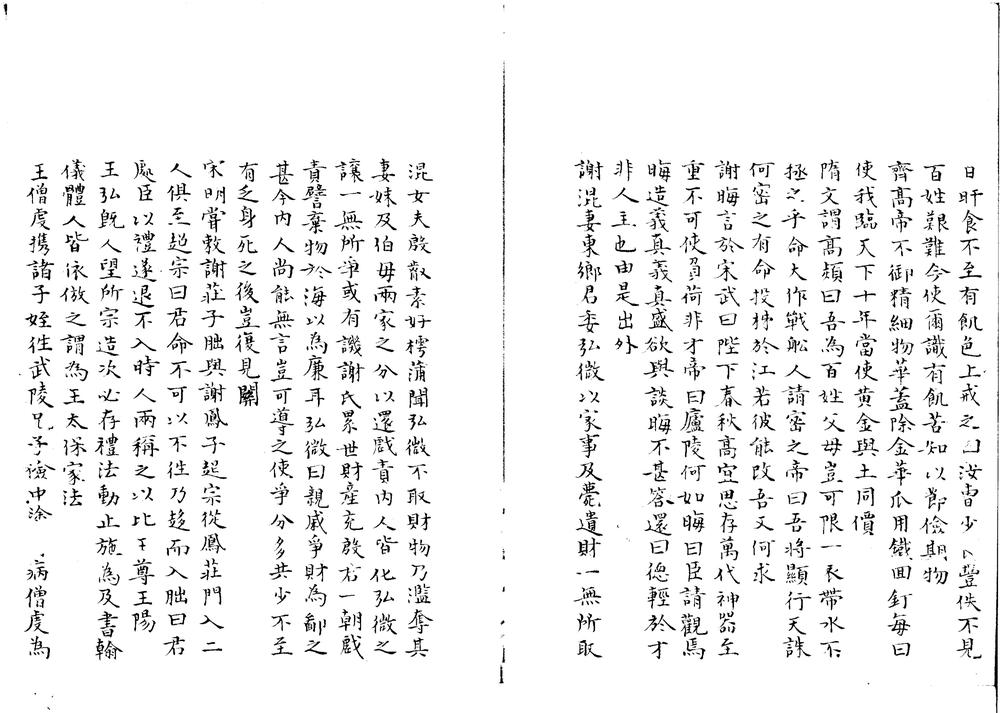 日旰食不至有飢色上戒之曰汝曹少長豐佚不見
百姓艱難今使爾識有飢苦知以節儉期物
齊高帝不御精細物華蓋除金華瓜用鐵回釘每曰
使我臨天下十年當使黄金與土同價
隋文謂高熲曰吾為百姓父母豈可限一衣帶水不
拯之乎命大作戰船人請密之帝曰吾將顯行天誅
何密之有命投抪於江若彼能改吾又何求
謝晦言於宋武曰陛下春秋高宜思存萬代神器至
重不可使負荷非才帝曰廬陵何如晦曰臣請觀焉
晦造義真義真盛欲與談晦不甚答還曰德輕於才
非人主也由是出外
謝混妻東鄉君委弘微以家事及薨遺財一無所取
混女夫殷叡素好樗蒲聞弘微不取財物乃濫奪其
妻妹及伯母兩家之分以還戲責內人皆化弘微之
讓一無所爭或有譏謝氏累世財產充殷君一朝戲
責譬棄物於海以為廉耳弘微曰親戚爭財為鄙之
甚今內人尚能無言豈可導之使爭分多共少不至
有乏身死之後豈復見關
宋明嘗敕謝莊子朏與謝鳳子超宗從鳳莊門入二
人俱至超宗曰君命不可以不往乃趍而入朏曰君
處臣以禮遂退不入時人兩稱之以比王尊王陽
王弘既人望所宗造次必存禮法動止施為及書翰
儀體人皆依倣之謂為王太保家法
王僧虔携諸子姪往武陵兄子儉中塗 病僧虔為